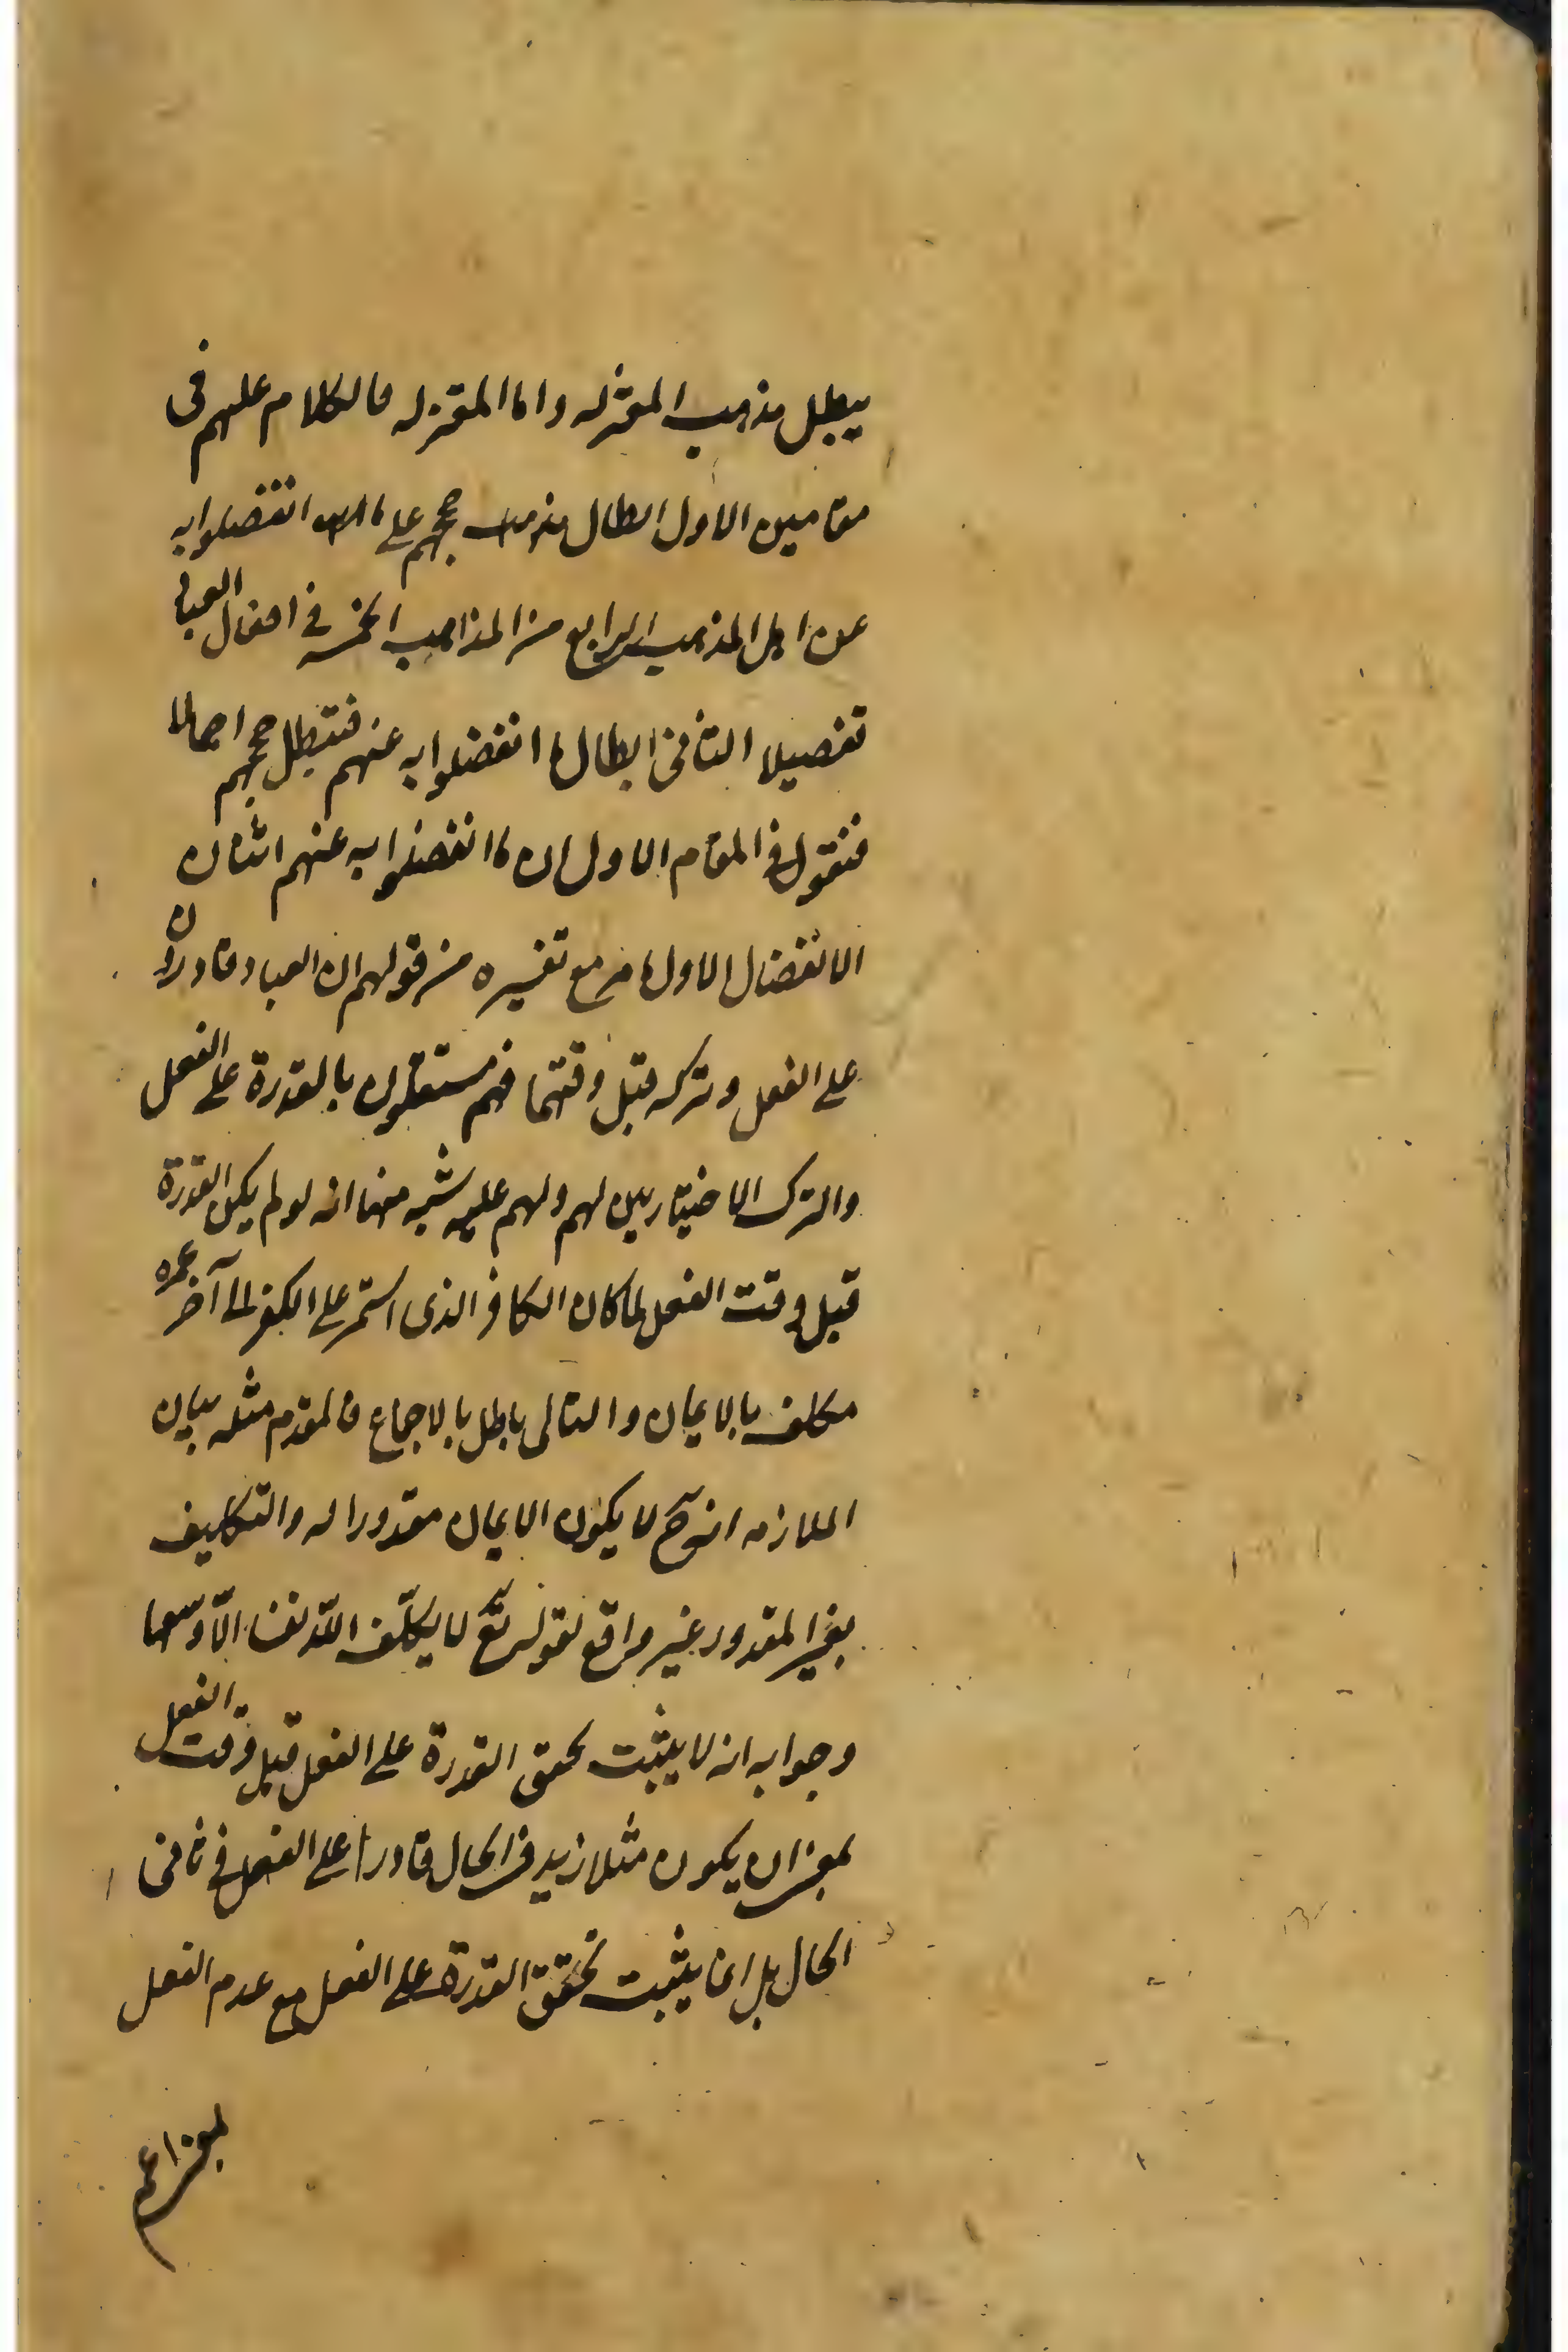 يبطل مذهب المعتزله واما المعتزله فالكلام عليهم فى
مقامين الاول ابطال حججهم على ما انفصلوا به
عن اهل المذهب الرابع من المذاهب الخمسه فى افعال العباد
تفصيلا الثانى ابطال ما انفصلوا به عنهم فتبطل حججهم اجمالا
فنقول فى المقام الاول ان ما انفصلوا به عنهم اثنان
الانفصال الاول ما مر مع تفسيره من قولهم ان العباد قادرون
على الفعل وتركه قبل وقتهما فهم مستقلون بالقدرة على الفعل
والترك الاختياريين لهم ولهم عليه شبه منها انه لو لم يكن القدرة
قبل وقت الفعل لما كان الكافر الذى استمر على الكفر الى آخر عمره
مكلف بالايمان والتالى باطل بالاجماع فالمقدم مثله بيان
الملازمه انه ح لا يكون الايمان مقدورا له والتكليف
بغير المقدور غير واقع لقوله تع لا يكلّف اللّه نفسا الّا وسعها
وجوابه انه لا يثبت تحقق القدرة على الفعل قبل وقت الفعل
بمعنى ان يكون مثلا زيد فى الحال قادرا على الفعل فى ثانى
الحال بل انما يثبت تحقق القدرة على الفعل مع عدم الفعل
بمعنى اعم